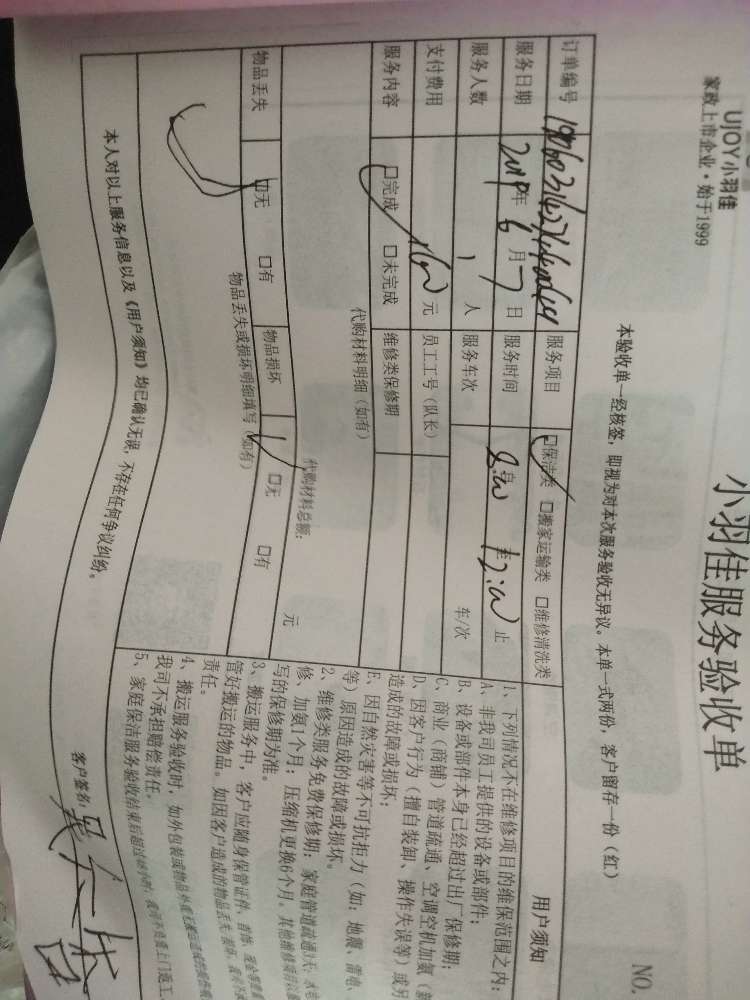 UJOY小羽佳
家政上市企业·始于1999
小羽佳服务验收单
NO.
本验收单一经核签，即视为对本次服务验收无异议。本单一式两份，客户留存一份（红）
订单编号 服务项目 □保洁类 □搬家运输类 □维修清洗类
服务日期 2019年6月7日 服务时间 8:00 至 12:00 止
服务人数 1 人 服务车次 车/次
支付费用 元 员工工号(队长)
服务内容 □完成 □未完成 维修类保修期
代购材料明细（如有）
代购材料总额： 元
物品丢失 □无 □有 物品损坏 □无 □有
物品丢失或损坏明细填写（如有）
本人对以上服务信息以及《用户须知》均已确认无误，不存在任何争议纠纷。
客户签名：
用户须知
1、下列情况不在维修项目的维保范围之内：
A、非我司员工提供的设备或部件；
B、设备或部件本身已经超过出厂保修期；
C、商业（商铺）管道疏通、空调空机加氨（
D、因客户行为（擅自装卸、操作失误等）或另
造成的故障或损坏；
E、因自然灾害等不可抗拒力（如：地震、雷电、
等）原因造成的故障或损坏。
2、维修类服务免费保修期：家庭管道疏通3天；水电
修、加氨1个月；压缩机更换6个月。其他维修项目以
写的保修期为准。
3、搬运服务中，客户应随身保管证件、首饰、现金等贵重
管好搬运的物品。如因客户造成的物品丢失、损坏，我司不
责任。
4、搬运服务验收时，如外包装或物品外观无搬运造成的
我司不承担赔偿责任。
5、家庭保洁服务验收结束后超过